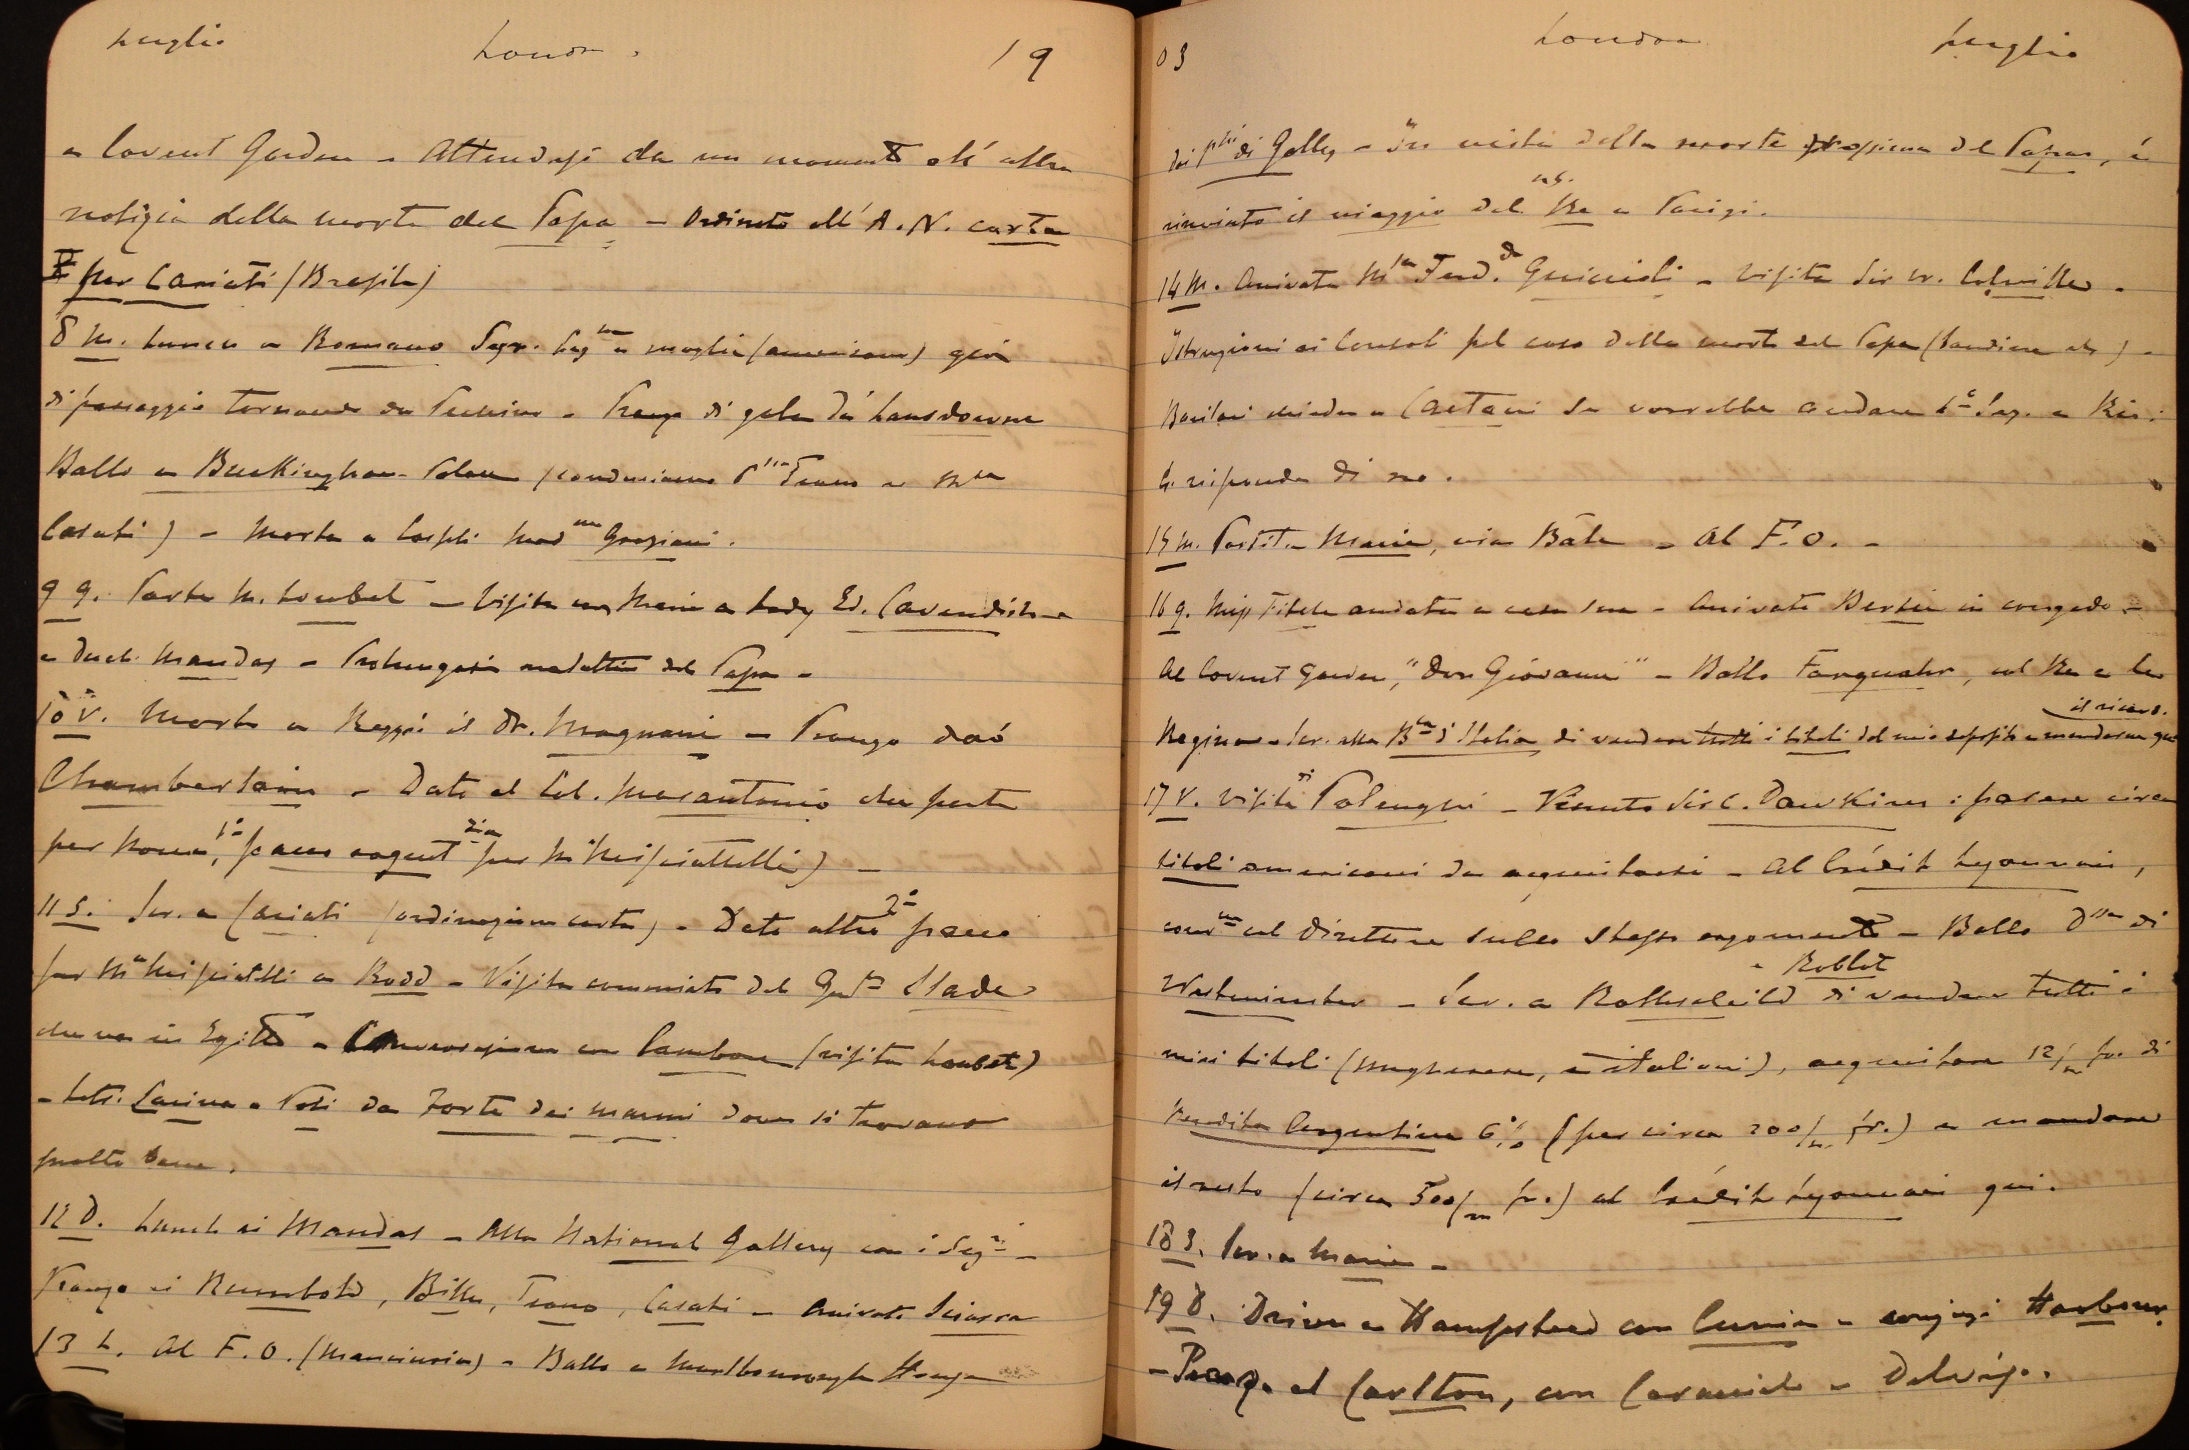 luglio Londra. 19
a Covent Garden - Attendesi da un momento all'altro
notizia della morte del Papa - Ordinato all'A. N. carta
per Cariati (Brasile)
8 M. Lunch a Romano Segr. Leg.ne e moglie (americana) qui
di passaggio tornando da Pechino - Pranzo di gala da Lansdowne
Ballo a Buckingham-Palace (conduciamo P.ssa Trano e M.sa
Casati) - Morta a Mad.me Graziani.
9 g. Parte M. Loubet - Visita con Maria a Lady Ed. Cavendish - e
a Duch. Mandas - Prolungasi malattia del Papa -
10 V. Morto a Reggio il Dr. Magnani - Pranzo da Jo
Chamberlain - Dato al Col. Marantonio che parte
per Roma, 1º pacco argent.ria per Mª Mispiattelli) -
11 S. Scr. a Cariati (ordinazione carta) - Dato altro 2º pacco
per Mª Mispiattelli a Rodd - Visita commiato del Gen.le Slade
che va in Egitto - Conversazione con Cambon (visita Loubet)
- Lett. Lavinia e Poli da Forte dei Marmi dove si trovano
molto bene.
12 D. Lunch ai Mandas - Alla National Gallery con i Seg.ri -
Pranzo ai Rumbold, Bille, Trano, Casati - Arrivato Sciarra
13 L. Al F. O. (Manciuria) - Ballo a Marlborough House
03 London luglio
dai P.pi di Galles - In vista della morte prossima del Papa, è
rinviato il viaggio del ns. Re a Parigi.
14 M. Arrivata M.sa Ferd.da Guiccioli - Visita Sir W. Colville -
Istruzioni ai Consoli pel caso della morte del Papa (bandiere etc) -
chiede a Caetani se vorrebbe andare 1º Seg. a Rio:
G. risponde di no.
15 M. Partita Maria, via Bâle - Al F. O. -
16 g. Miss Fitch andata a casa sua - Arrivato Bertie in congedo -
Al Covent Garden, "Don Giovanni" - Ballo Farquahr, col Re e la
Regina - Scr. alla B.ca d'Italia di vendere tutti i titoli del mio deposito e mandarne qui
il ricavo.
17 V. Visita di Polenghi - Venuto Sir C. Dawkins: parere circa
titoli americani da acquistarsi - Al Crédit Lyonnais,
conv.ne col Direttore sullo stesso argomento - Ballo D.ssa di
Westminster - Scr. a Rothschild e Roblot di vendere tutti i
miei titoli (ungherese, e italiani), acquistare 12/m fr. di
rendita Argentina 6% (per circa 200/m fr.) e mandare
il resto (circa 500/m fr.) al Crédit Lyonnais qui.
18 S. Scr. a Maria -
19 D. Drive a Hampstead con e coniugi
- Pranzo al Carlton, con e